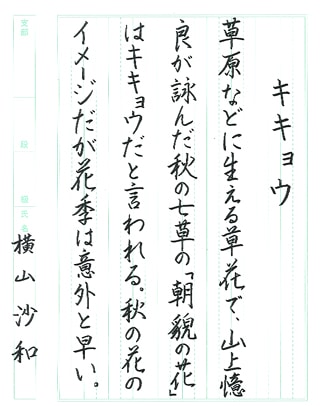 キキョウ
草原などに生える草花で、山上憶
良が詠んだ秋の七草の「朝貌の花」
はキキョウだと言われる。秋の花の
イメージだが花季は意外と早い。
支部
段
級
氏名
横山沙和